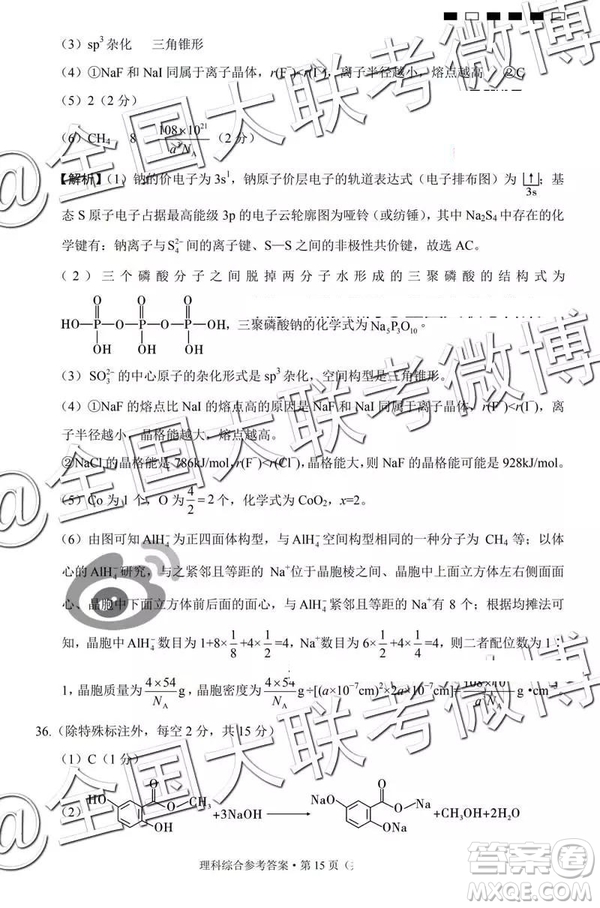 (3) sp³杂化 三角锥形
(4) ①NaF 和 NaI 同属于离子晶体，r(F⁻)<r(I⁻)，离子半径越小，熔点越高 ②C
(5) 2 (2 分)
(6) CH₄ 8 108×10²¹/a³Nₐ (2 分)
【解析】(1) 钠的价电子为 3s¹，钠原子价层电子的轨道表达式（电子排布图）为 ↑ 3s；基
态 S 原子电子占据最高能级 3p 的电子云轮廓图为哑铃（或纺锤），其中 Na₂S₄ 中存在的化
学键有：钠离子与 S₄²⁻ 间的离子键、S—S 之间的非极性共价键，故选 AC。
(2) 三个磷酸分子之间脱掉两分子水形成的三聚磷酸的结构式为
HO—P—O—P—O—P—OH，三聚磷酸钠的化学式为 Na₅P₃O₁₀。
O O O
OH OH OH
(3) SO₃²⁻ 的中心原子的杂化形式是 sp³杂化，空间构型是三角锥形。
(4) ①NaF 的熔点比 NaI 的熔点高的原因是 NaF 和 NaI 同属于离子晶体，r(F⁻)<r(I⁻)，离
子半径越小，晶格能越大，熔点越高。
②NaCl 的晶格能是 786kJ/mol，r(F⁻)<r(Cl⁻)，晶格能越大，则 NaF 的晶格能可能是 928kJ/mol。
(5) Co 为 1 个，O 为 4/2=2 个，化学式为 CoO₂，x=2。
(6) 由图可知 AlH₄⁻ 为正四面体构型，与 AlH₄⁻ 空间构型相同的一种分子为 CH₄ 等；以体
心的 AlH₄⁻ 研究，与之紧邻且等距的 Na⁺位于晶胞棱之间、晶胞中上面立方体左右侧面面
心、晶胞中下面立方体前后面的面心，与之紧邻且等距的 Na⁺有 8 个；根据均摊法可
知，晶胞中 AlH₄⁻ 数目为 1+8×1/8+4×1/2=4，Na⁺数目为 6×1/2+4×1/4=4，则二者配位数为 1：
1，晶胞质量为 4×54/Nₐ g，晶胞密度为 4×54/Nₐ g÷[(a×10⁻⁷cm)²×2a×10⁻⁷cm]=108×10²¹/a³Nₐ g·cm⁻³。
36.（除特殊标注外，每空 2 分，共 15 分）
(1) C (1 分)
(2) HO O O CH₃ OH +3NaOH → NaO O O Na ONa +CH₃OH+2H₂O
理科综合参考答案·第 15 页（
@全国大联考微博
@全国大联考微博
@全国大联考微博